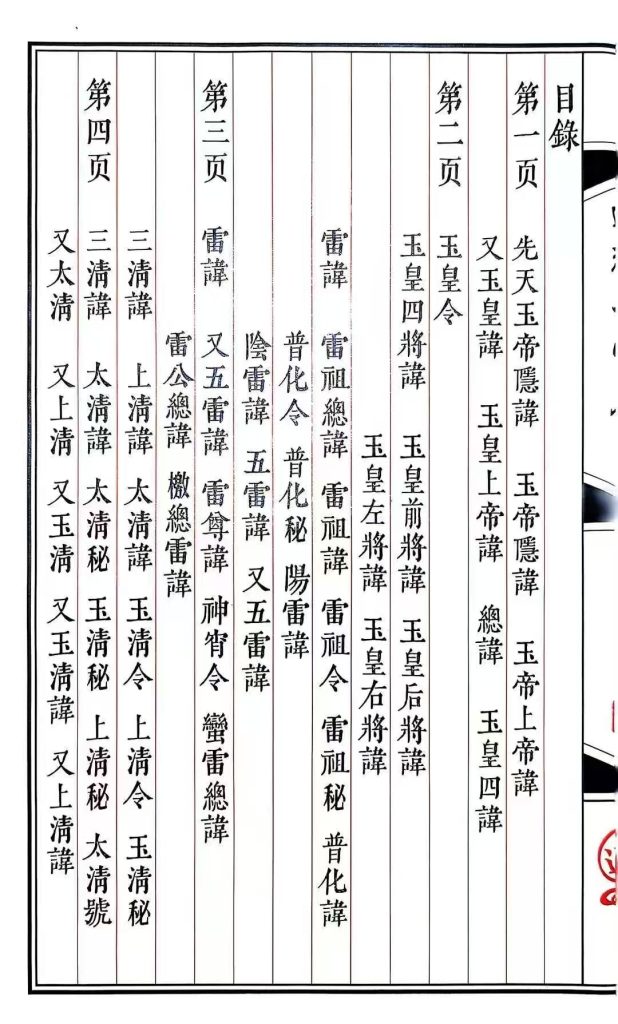 目錄
第一页 先天玉帝隱諱 玉帝隱諱 玉帝上帝諱
又玉皇諱 玉皇上帝諱 總諱 玉皇四諱
第二页 玉皇令
玉皇四將諱 玉皇前將諱 玉皇后將諱
玉皇左將諱 玉皇右將諱
雷諱 雷祖總諱 雷祖諱 雷祖令 雷祖秘 普化諱
普化令 普化秘 陽雷諱
陰雷諱 五雷諱 又五雷諱
第三页 雷諱 又五雷諱 雷尊諱 神宵令 蠻雷總諱
雷公總諱 檄總雷諱
三清諱 上清諱 太清諱 玉清令 上清令 玉清秘
第四页 三清諱 太清諱 太清秘 玉清秘 上清秘 太清號
又太清 又上清 又玉清 又玉清諱 又上清諱